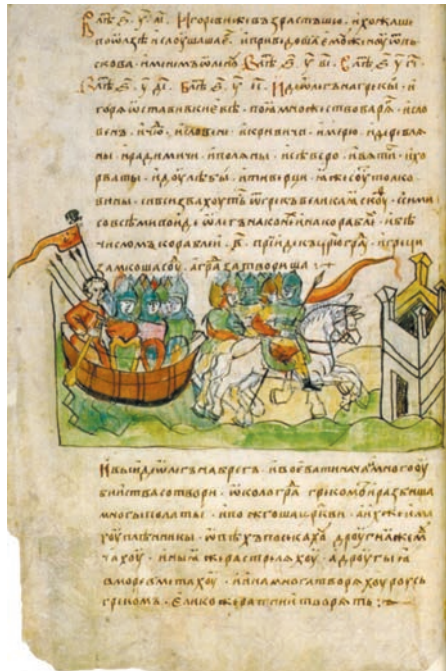 В лѣ҃ ѕ҃. у҃. аі҃. Игореви же възрастъшю. и хожаше
по ѡлзѣ и слоушаше. и приведоша емоу женоу ѿ пь
скова. именемъ ѡленоу. В лѣ҃ ѕ҃. у҃ ві҃. В лѣ҃ ѕ҃. у҃ гі҃
В лѣ҃ ѕ҃. у҃ ді҃. В лѣ҃ ѕ҃. у҃ еі҃. Иде ѡлегъ на грекы. и
горѧ ѡстави в киевѣ. поѧ множество варѧ. и сло
венъ. и чю. и словене. и кривичи. и мерю. и деревлѧ
ны. и радимичи. и полѧны. и северо. и вѧти. и хо
рваты. и доулѣбы. и тиверци. ꙗже соуть толко
вины. си вси звахоуть ѿ грекъ великаꙗ скоу. с сими
со всеми поиде ѡлегъ на коне и на корабле. и бѣ
числомъ кораблеи. в҃. прїиде къ цр҃югра. и греци
замкоша соу. а гра затвориша
И выиде ѡлегъ на брегъ. и воевати нача. и много оу
бииства сотвори. ѡколо гра грекомъ. и разбиша
многы полаты. и пожгоша церкви. а ихже има
хоу плѣнникы. ѡвѣхъ посекахоу. дроугиꙗ же моу
чахоу. иныꙗ же растрелѧхоу. а дроугыꙗ
в море вметахоу. и ина многа творѧхоу роусь
грекомъ. елико же ратнии творѧть